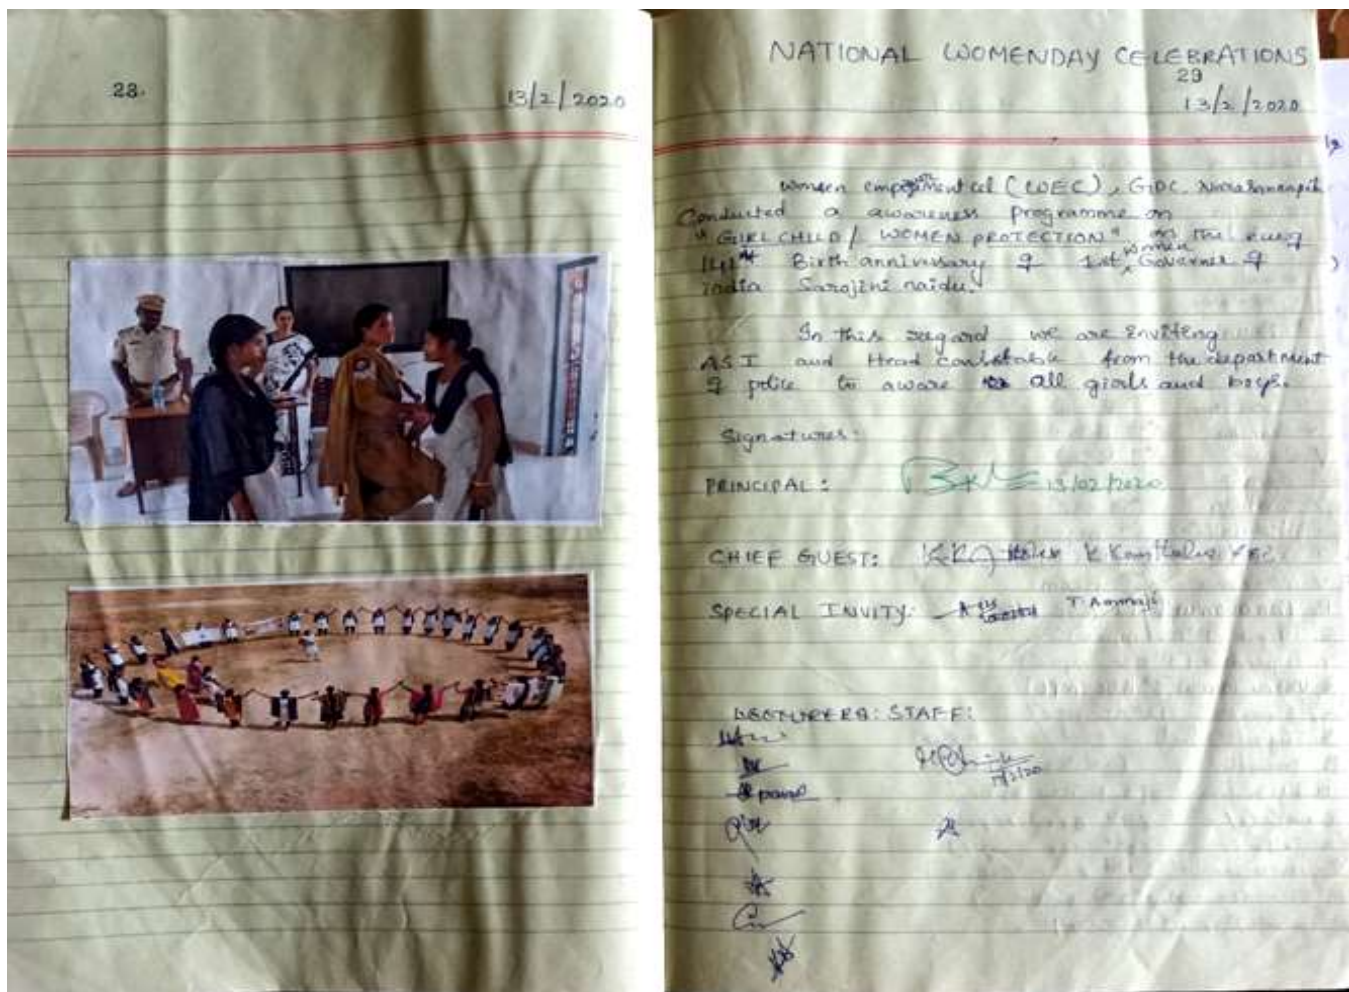 28.
13/2/2020
NATIONAL WOMENDAY CELEBRATIONS
29
13/2/2020
Women empowerment cel (WEC), GDC
Conducted a awareness programme on
"GIRL CHILD / WOMEN PROTECTION" on the
141st Birth anniversary of 1st women Governer of
india Sarojini naidu.
In this regard we are inviting
ASI and Head constable from the department
of police to aware all girls and boys.
Signatures:
PRINCIPAL: 13/02/2020
CHIEF GUEST:
SPECIAL INVITY:
LECTURERS: STAFF: